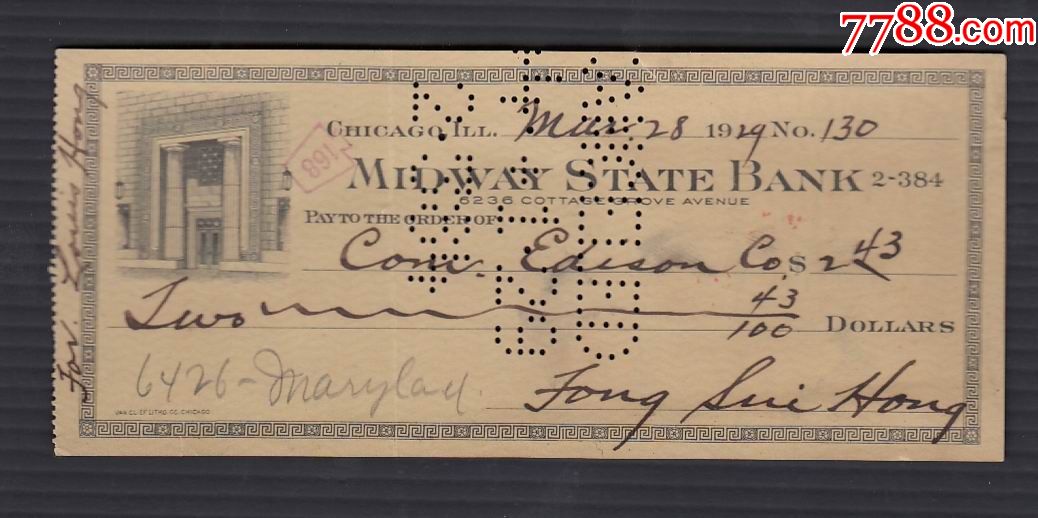 7788.com
CHICAGO, ILL. Mar. 28 1929 No. 130
168
MIDWAY STATE BANK 2-384
6236 COTTAGE GROVE AVENUE
PAY TO THE ORDER OF
Com. Edison Co. $ 2 43
Two 43/100 DOLLARS
6426-Marylad.
Fong Sui Hong
For. Louis Hong